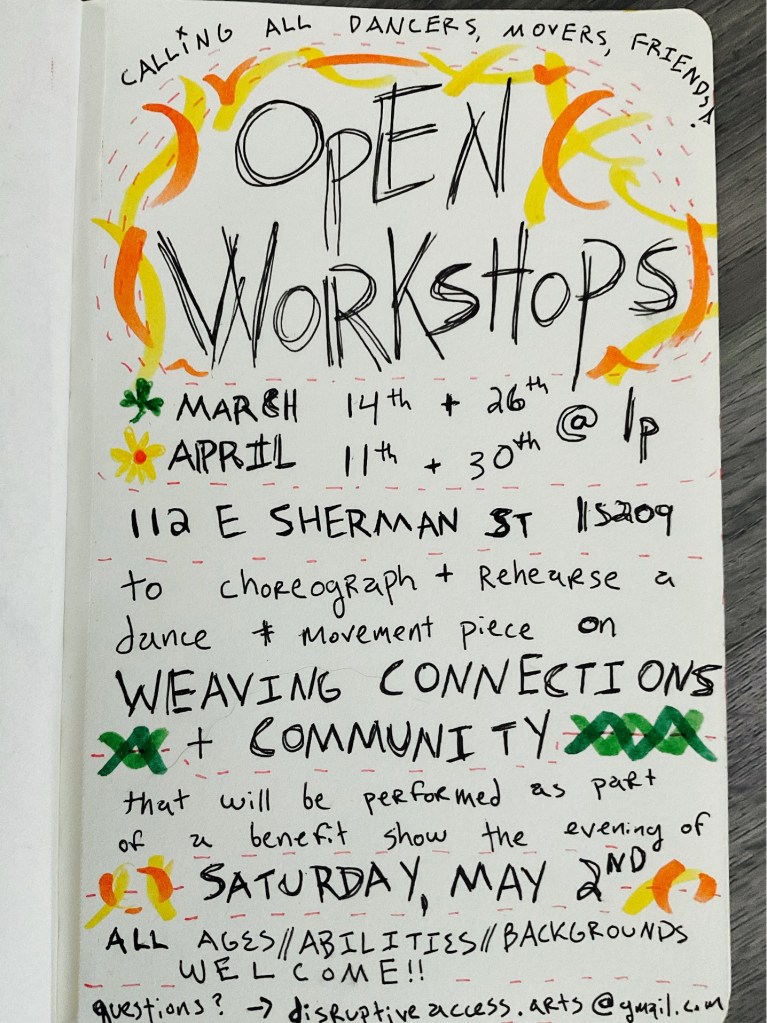 CALLING ALL DANCERS, MOVERS, FRIENDS!
OPEN
WORKSHOPS
MARCH 14th + 26th @ 1p
APRIL 11th + 30th
112 E SHERMAN ST 15209
to choreograph + Rehearse a
dance + movement piece on
WEAVING CONNECTIONS
+ COMMUNITY
that will be performed as part
of a benefit show the evening of
SATURDAY, MAY 2ND
ALL AGES//ABILITIES//BACKGROUNDS
WELCOME!!
questions? → disruptiveaccess.arts@gmail.com